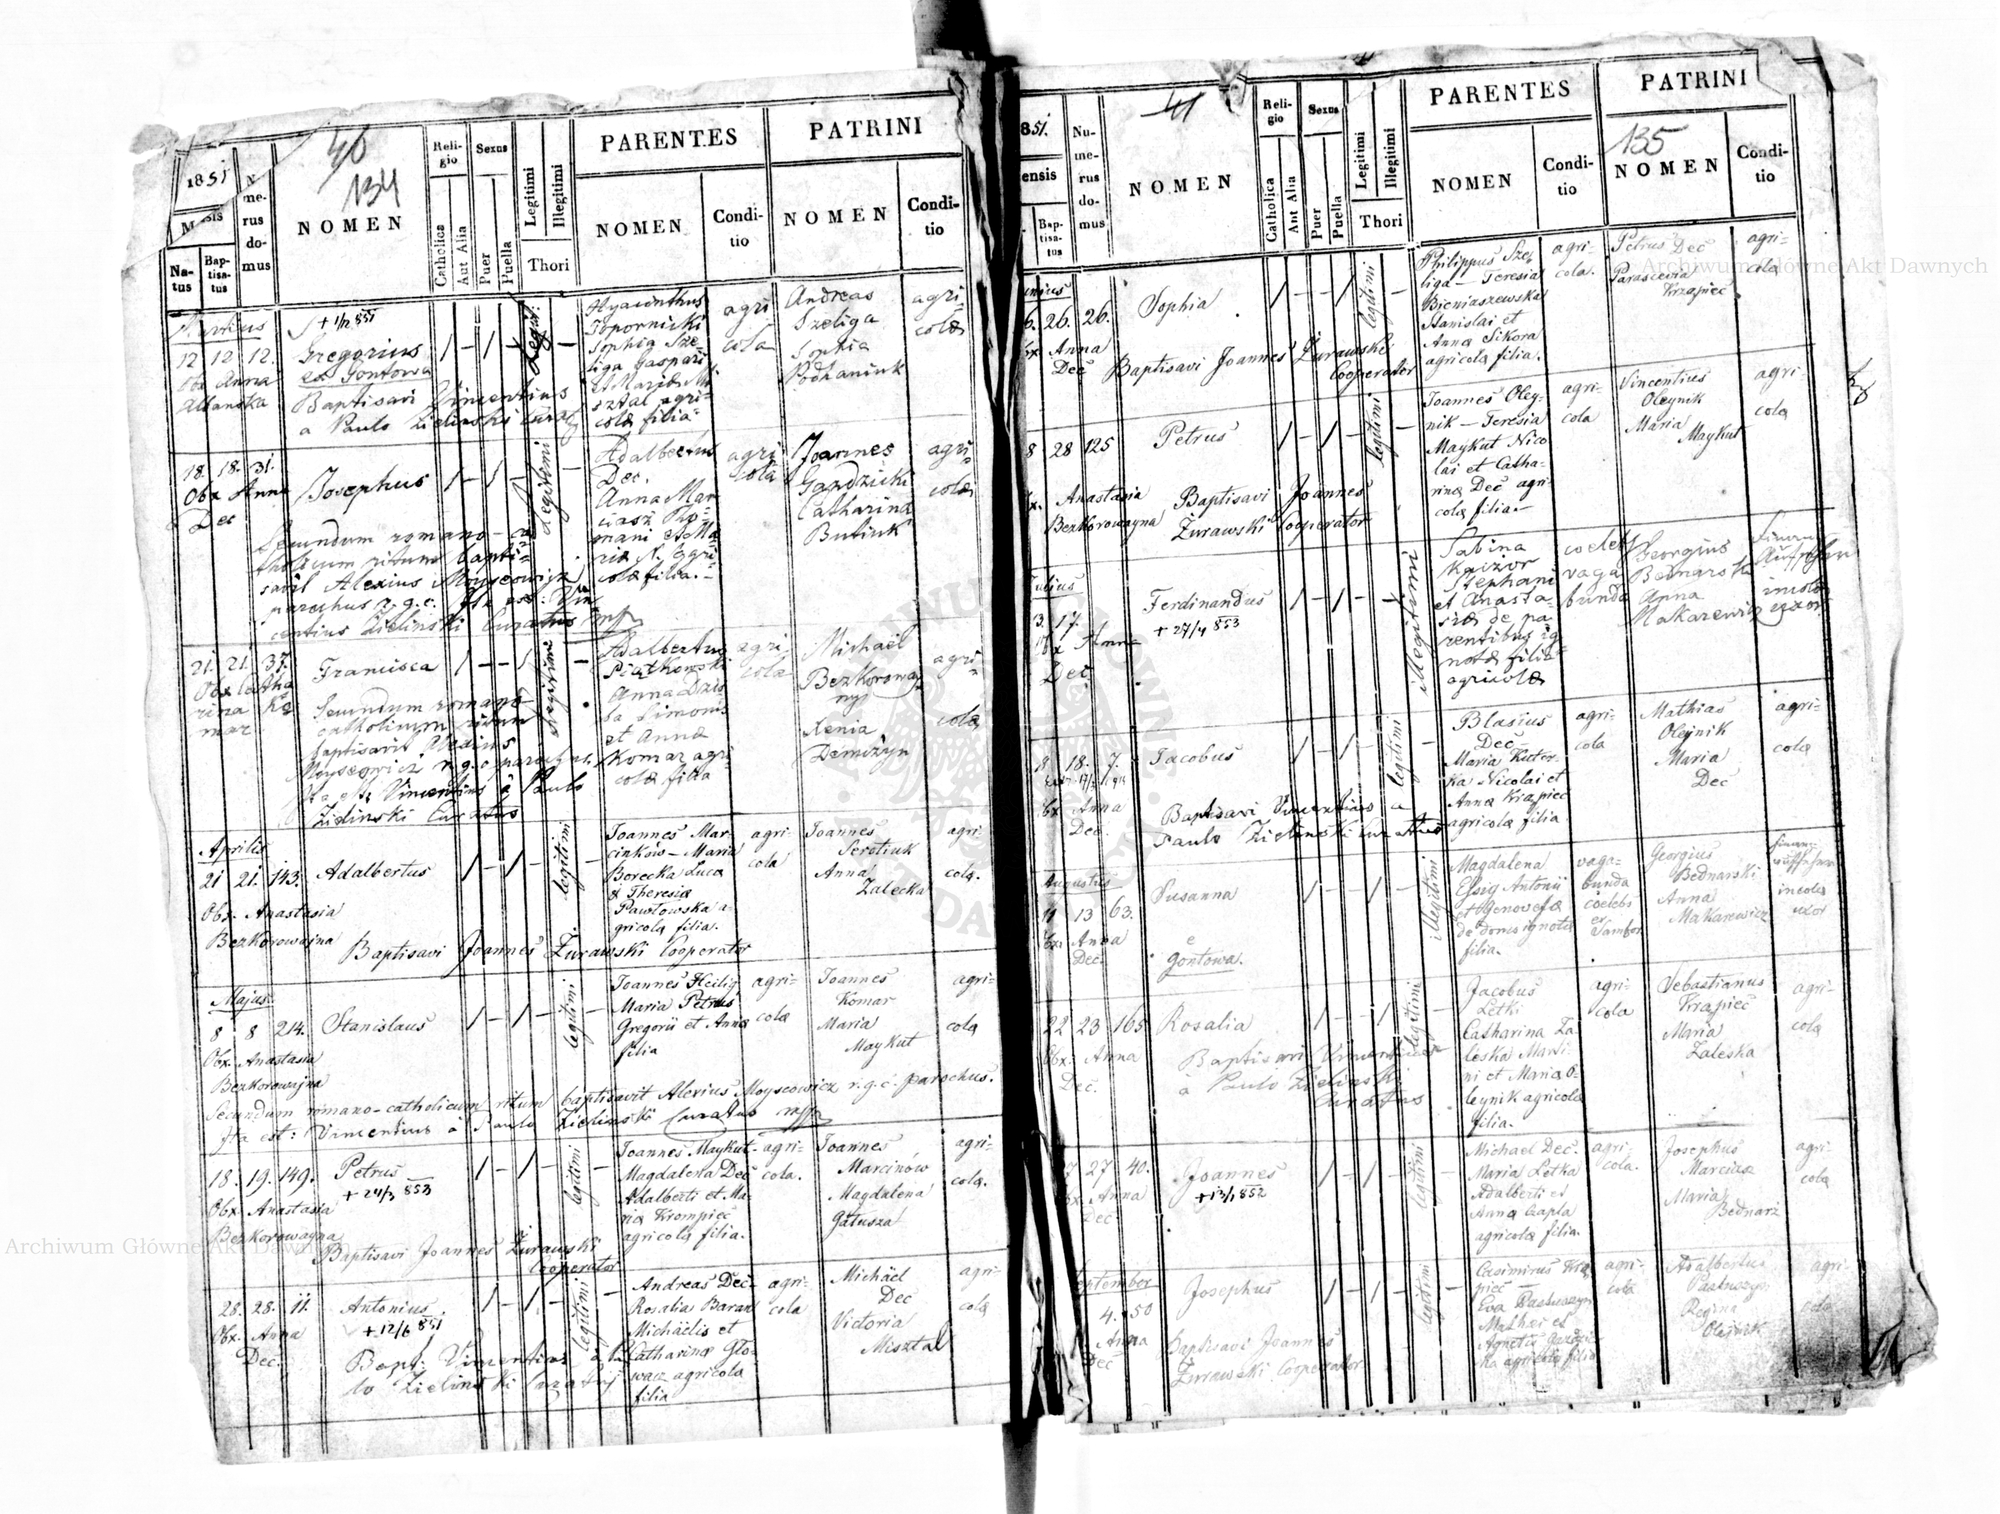 40
134
1851
Mensis
Natus
Baptisatus
Numerus domus
NOMEN
Religio
Catholica
Aut Alia
Sexus
Puer
Puella
Legitimi
Illegitimi
Thori
PARENTES
NOMEN
Conditio
PATRINI
NOMEN
Conditio
Martius
12 12 12.
Obx Anna
+ 1/12 851
Gregorius
ex Gontowa
Baptisavi Vincentius
a Paulo Zieliński Curat
Legit:
Hyacinthus
Topornicki
Sophia Sze-
liga Gaspari
et Maria Mi
sztal agri-
colæ filia-
agri
cola
Andreas
Szeliga
Sophia
Podhaniuk
agri
colæ
18. 18. 31.
Obx Anna
Dec
Josephus
Secundum romano-ca
tholicum ritum bapti-
savit Alexius Moyseowicz
parochus r. g. c. Ita est: Vin
centius Zieliński Curatus mp
Legitimi
Adalbertus
Dec.
Anna Mar
ciasz Ro-
mani et Ma
ria N. agri-
colæ filia.-
agri
cola
Joannes
Gardzicki
Catharina
Butiuk
agri
colæ
21. 21. 37.
Obx Catha
rina Ko
mar
Francisca
Secundum romano
catholicum ritum
baptisavit Alexius
Moyseowicz r. g. c. parochus
Ita est: Vincentius à Paulo
Zieliński Curatus
legitimi
Adalbertus
Piątkowski
Anna Dzis
ba Simonis
et Anna
Komar agri
colæ filia
agri
cola
Michael
Bezkorowaj
nyj
Xenia
Demczyn
agri
colæ
Aprilis
21 21. 143.
Obx. Anastasia
Bezkorowajna
Adalbertus
Baptisavi Joannes Żurawski Cooperator
legitimi
Joannes Mar-
cinków - Maria
Borecka Lucæ
& Theresiæ
Pawłowska a-
gricolæ filia.
agri-
cola
Joannes
Serotiuk
Anna
Zalecka
agri-
colæ.
Majus
8 8 214.
Obx. Anastasia
Bezkorowajna
Stanislaus
Secundum romano-catholicum ritum baptisavit Alexius Moyseowicz r. g. c. parochus.
Ita est: Vincentius à Paulo Zieliński Curatus mpp
legitimi
Joannes Heilig
Maria Petrus
Gregorii et Annæ
filia
agri-
colæ
Joannes
Komar
Maria
Maykut
agri-
colæ
18. 19. 149.
Obx. Anastasia
Bezkorowayna
Petrus
+ 24/3 853
Baptisavi Joannes Żurawski
Cooperator
legitimi
Joannes Maykut-
Magdalena Dec
Adalberti et Ma-
riæ Krompiec
agricolæ filia.
agri-
cola.
Joannes
Marcinów
Magdalena
Gałusza
agri-
colæ.
28. 28. 11.
Obx. Anna
Dec.
Antonius
+ 12/6 851
Bapt: Vincentius à Pau
lo Zieliński Curatus
legitimi
Andreas Dec-
Rosalia Baran
Michäelis et
Catharinæ Gło-
wacz agricolæ
filia
agri-
cola
Michäel
Dec
Victoria
Misztal
agri-
colæ
41
135
1851.
Mensis
Baptisatus
Numerus domus
NOMEN
Religio
Catholica
Aut Alia
Sexus
Puer
Puella
Legitimi
Illegitimi
Thori
PARENTES
NOMEN
Conditio
PATRINI
NOMEN
Conditio
Junius
26. 26.
Obx Anna
Dec
Sophia
Baptisavi Joannes Żurawski
Cooperator
legitimi
Philippus Sze-
liga - Teresia
Bieniaszewska
Stanislai et
Anna Sikora
agricolæ filia.
agri-
cola.
Petrus Dec
Parascevia
Krząpiec
agri-
colæ
8 28 125
Obx. Anastasia
Bezkorowayna
Petrus
Baptisavi Joannes
Żurawski Cooperator
legitimi
Joannes Oley-
nik - Teresia
Maykut Nico
lai et Catha-
rinæ Dec agri
colæ filia.-
agri-
cola
Vincentius
Oleynik
Maria
Maykut
agri
colæ
Julius
13. 17.
Obx Anna
Dec.
Ferdinandus
+ 27/4 853
illegitimi
Sabina
Kaizor
Stephani
et Anasta-
siæ de pa
rentibus ig
notæ filia
agricolæ
coelebs
vaga
bunda
Georgius
Bednarski
Anna
Makarewicz
incolæ
uxor
18 18. 7.
Obx Anna
Dec.
Jacobus
Baptisavi Vincentius a
Paulo Zieliński Curatus
legitimi
Blasius
Dec
Maria Kuter-
ka Nicolai et
Anna Krąpiec
agricolæ filia
agri-
cola
Mathias
Olejnik
Maria
Dec
agri-
colæ
Augustus
11 13 63.
Obx. Anna
Dec.
Susanna
e
Gontowa.
illegitimi
Magdalena
Elsig Antonii
et Genovefæ
de domo ignota
filia.
vaga-
bunda
coelebs
Georgius
Bednarski
Anna
Makarewicz
incolæ
uxor
22 23 165
Obx. Anna
Dec.
Rosalia
Baptisavi Vincentius
a Paulo Zieliński
Curatus
legitimi
Jacobus
Letki
Catharina Za
leska Marti-
ni et Mariæ O-
leynik agricolæ
filia.
agri-
cola
Sebastianus
Krąpiec
Maria
Zaleska
agri-
colæ
27 40.
Obx. Anna
Dec
Joannes
+ 13/1 852
legitimi
Michael Dec.
Maria Letka
Adalberti et
Anna Czapla
agricolæ filia.
agri-
cola.
Josephus
Marciasz
Maria
Bednarz
agri-
colæ
September
4. 50
Anna
Dec
Josephus
Baptisavi Joannes
Żurawski Cooperator
legitimi
Casimirus Krą
piec
Eva Pastuszyn
Mathæi et
agricolæ filia
agri-
cola
Adalbertus
Pastuszyn
Regina
Olejnik
agri-
colæ
Archiwum Główne Akt Dawnych
Archiwum Główne Akt Dawnych